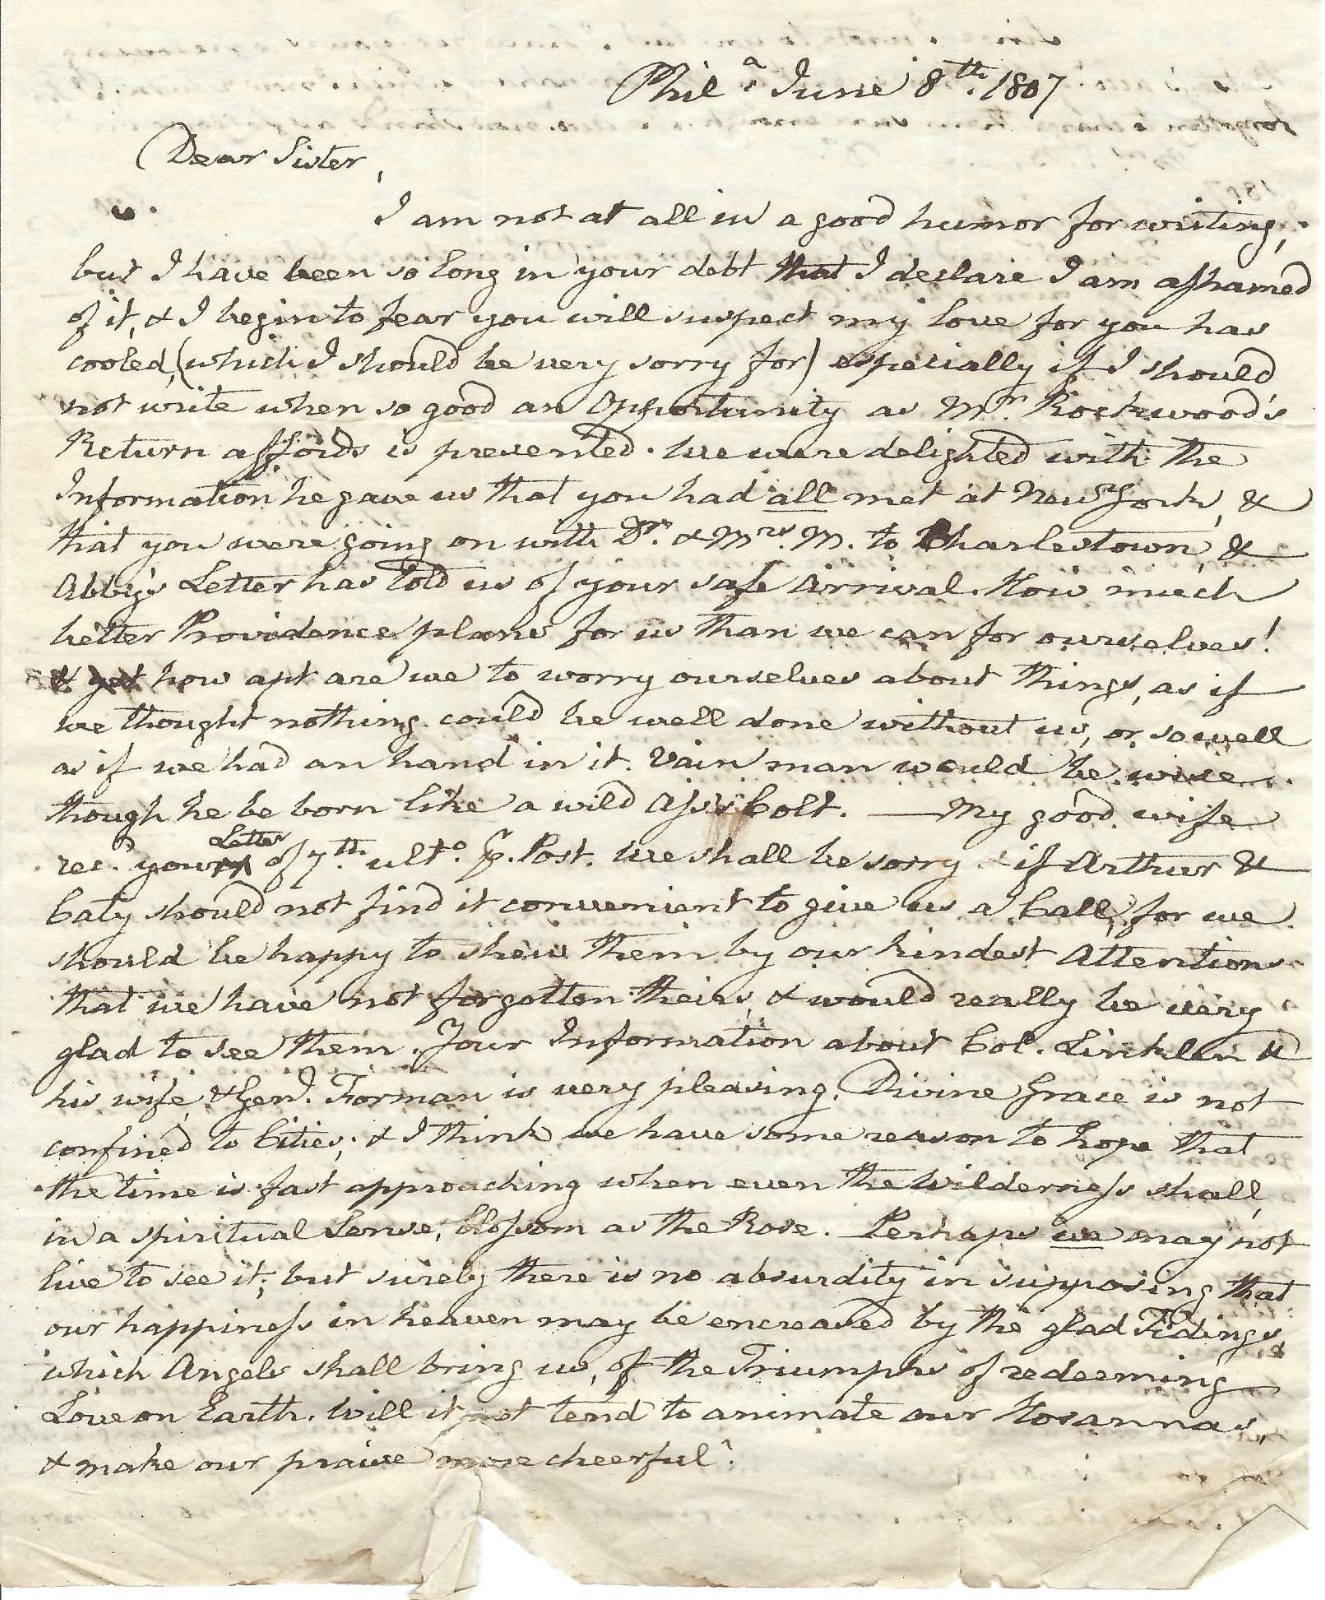 Phil.ᵃ June 8ᵗʰ. 1807
Dear Sister,
I am not at all in a good humor for writing,
but I have been so long in your debt that I declare I am ashamed
of it, & I begin to fear you will suspect my love for you has
cooled, (which I should be very sorry for) especially if I should
not write when so good an Opportunity as Mr. Rockwood's
Return affords is presented. We were delighted with the
Information he gave us that you had all met at New York, &
that you were going on with Dr. & Mrs. M. to Charlestown, &
Abby's Letter has told us of your safe Arrival. How much
better Providence plans for us than we can for ourselves!
& yet how apt are we to worry ourselves about things, as if
we thought nothing could be well done without us, or so well
as if we had an hand in it. Vain man would be wise
though he be born like a wild Ass's Colt. — My good wife
recd. your Letter of 7th. ulto. p. Post. We shall be sorry if Arthur &
Caty should not find it convenient to give us a Call, for we
should be happy to shew them by our kindest Attentions
that we have not forgotten theirs, & would really be very
glad to see them. Your Information about Col. Lincklen &
his wife, & Genl. Forman is very pleasing. Divine Grace is not
confined to Cities; & I think we have some reason to hope that
the time is fast approaching when even the Wilderness shall,
in a spiritual Sense, blossom as the Rose. Perhaps we may not
live to see it; but surely there is no absurdity in supposing that
our happiness in heaven may be encreased by the glad Tidings,
which Angels shall bring us, of the Triumphs of redeeming
Love on Earth. Will it not tend to animate our Hosannas,
& make our praise more cheerful?